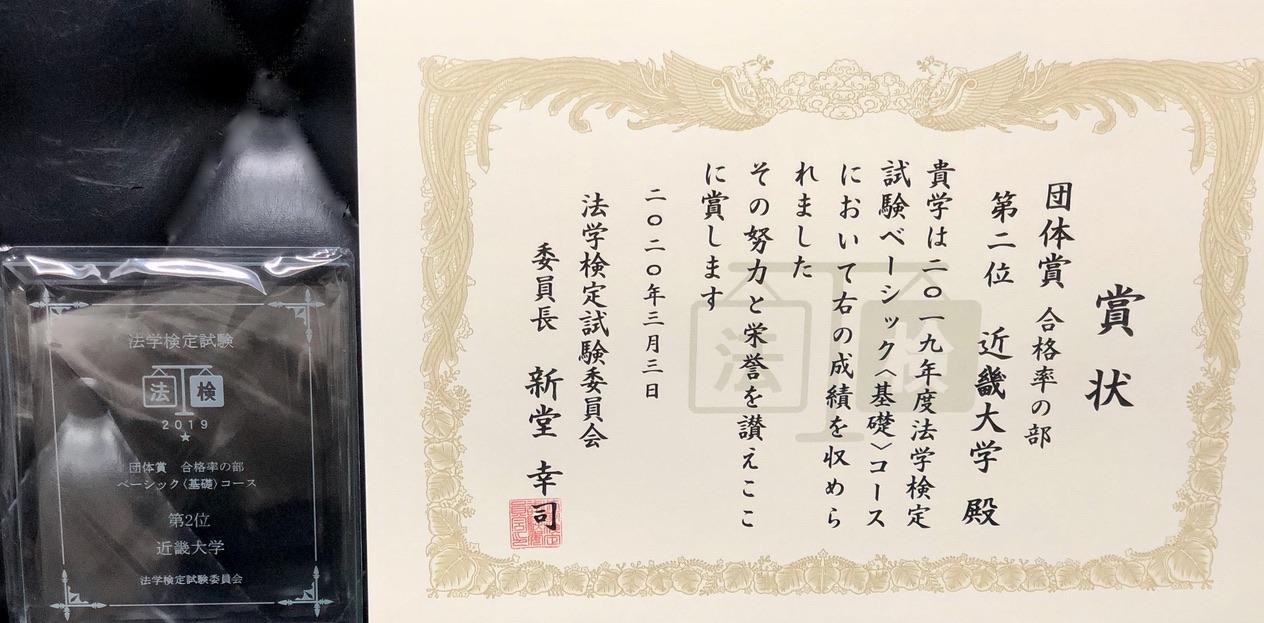 賞状
団体賞 合格率の部
第二位 近畿大学 殿
貴学は二〇一九年度法学検定
試験ベーシック〈基礎〉コース
において右の成績を収めら
れました
その努力と栄誉を讃えここ
に賞します
二〇二〇年三月三日
法学検定試験委員会
委員長 新堂 幸司
法 検
法学検定試験
法 検
2019
団体賞 合格率の部
ベーシック〈基礎〉コース
第2位
近畿大学
法学検定試験委員会